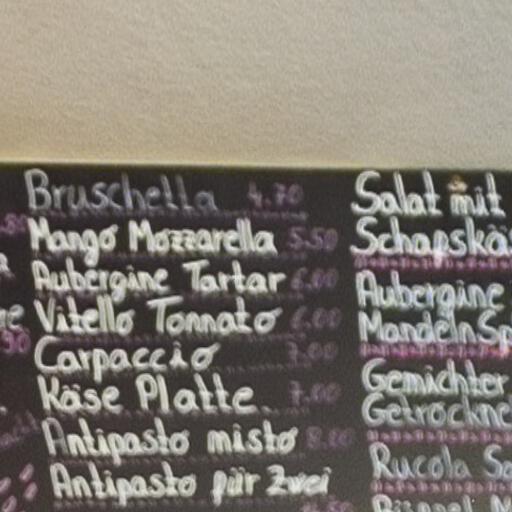 Bruschetta 4.70
Mango Mozzarella 5.50
Aubergine Tartar 6.00
Vitello Tonnato 6.00
Carpaccio 7.00
Käse Platte 7.00
Antipasto misto
Antipasto für Zwei
Salat mit
Schafskäs
Aubergine
Mandeln Sp
Gemichter
Getrockne
Rucola Sa